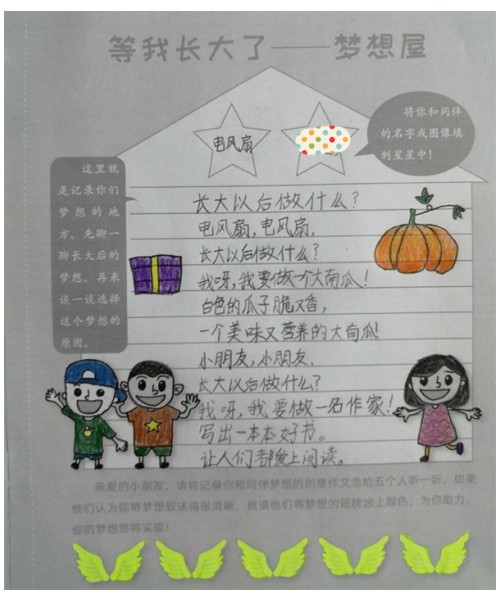 等我长大了——梦想屋
电风扇
将你和同伴
的名字或图像填
到星星中！
这里就
是记录你们
梦想的地
方。先聊一
聊长大后的
梦想，再来
谈一谈选择
这个梦想的
原因。
长大以后做什么？
电风扇，电风扇，
长大以后做什么？
我呀，我要做一个大南瓜！
白色的瓜子脆又香，
一个美味又营养的大南瓜！
小朋友，小朋友，
长大以后做什么？
我呀，我要做一名作家！
写出一本本好书。
让人们都爱上阅读。
亲爱的小朋友，请将记录你和同伴梦想的创意作文念给五个人听一听，如果
他们认为你将梦想叙述得很清晰，就请他们将梦想的翅膀涂上颜色，为你助力，
你的梦想终将实现！